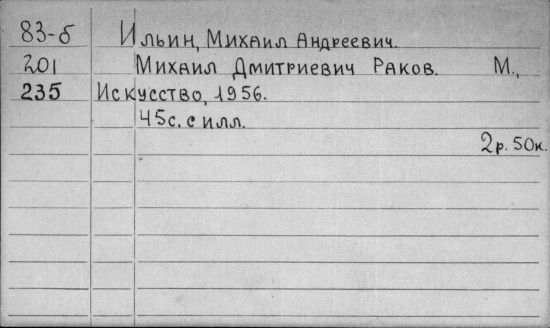 83-б Ильин, Михаил Андреевич.
201 Михаил Дмитриевич Раков. М.,
235 Искусство, 1956.
45с. с илл.
2р. 50к.